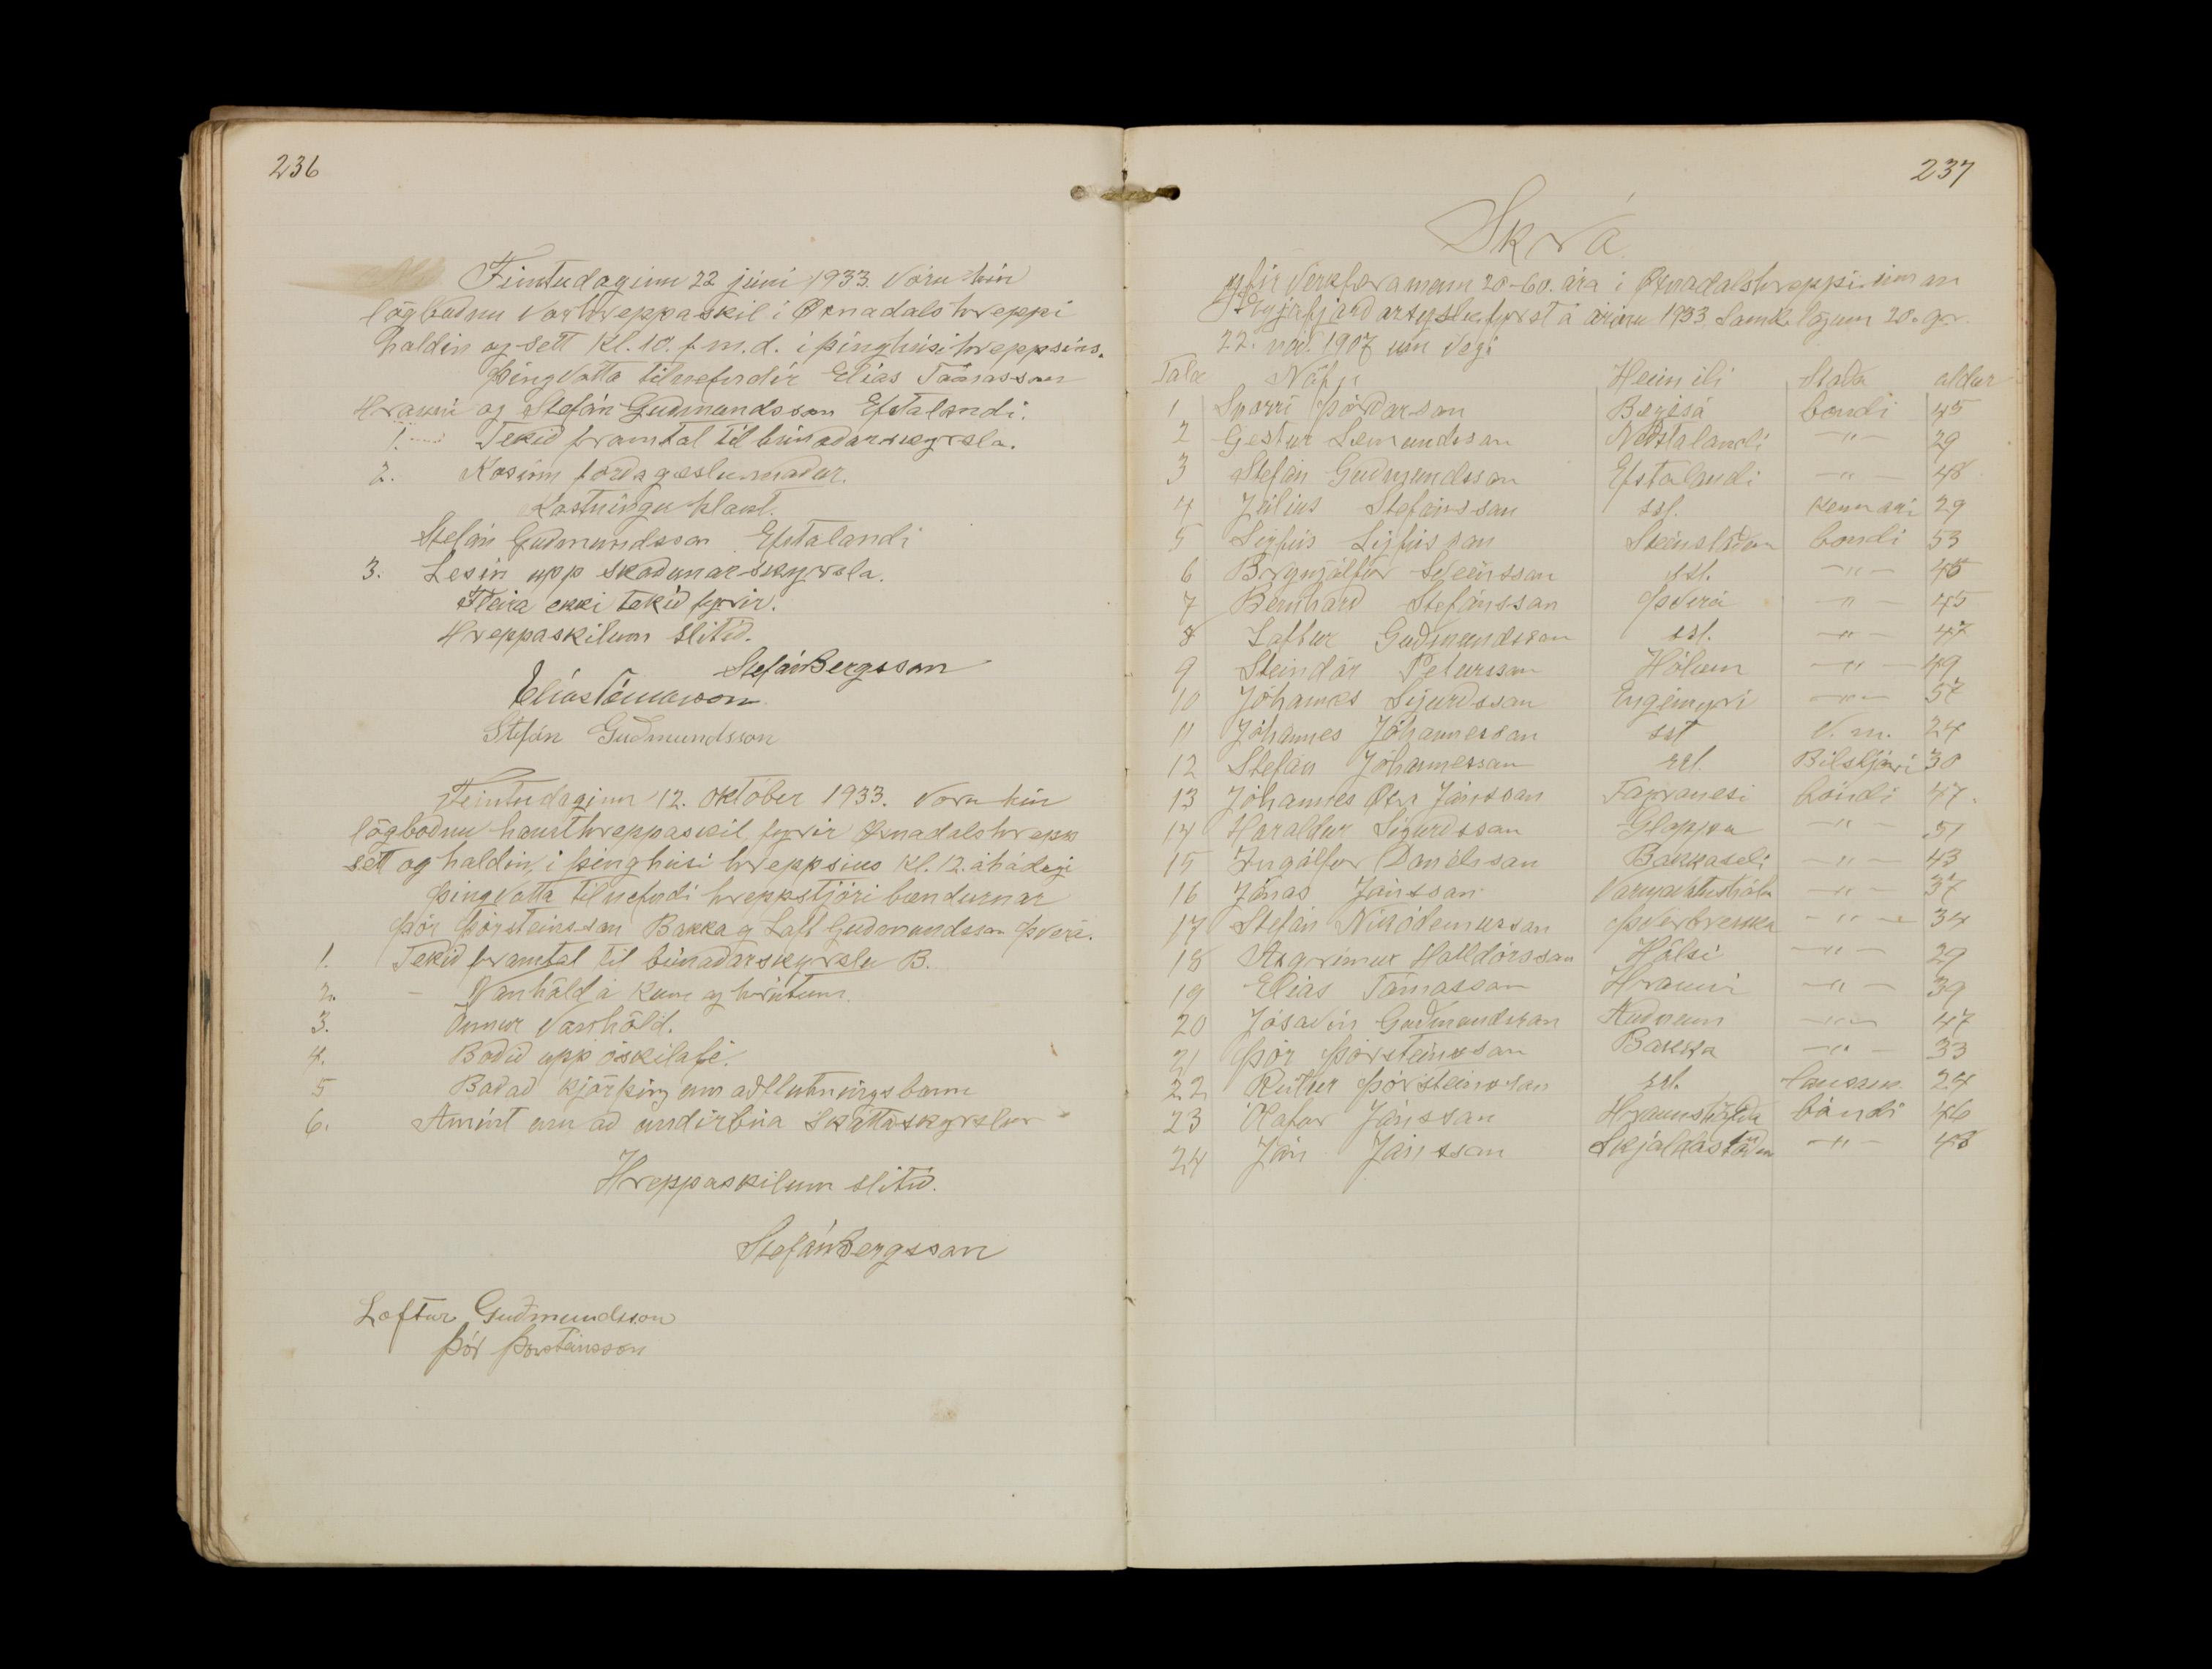 236
Fimtudaginn 22 júni 1933. Voru hin
lögbodnu vorhreppaskil i Öxnadalshreppi
haldin og sett Kl. 10. f.m.d. i þinghúsi hreppsins.
þingvotta tilnefndir Elías Tómasson
Hrauni og Stefán Gudmundsson Efstalandi.
1. Tekid framtal til búnadarskyrsla.
2. Kosinn fordagæslumadur.
Kostningu hlaut.
Stefán Gudmundsson Efstalandi
3. Lesin upp skodunarskyrsla.
Fleira ekki tekid fyrir.
Hreppaskilum slitid.
Stefán Bergsson
Elías Tómasson
Stefán Guðmundsson
Feimtudaginn 12. Október 1933. Voru hin
lögbodnu hausthreppaskil fyrir Öxnadalshrepp
sett og haldin, i þinghúsi hreppsins Kl. 12. á hádegi
þingvotta tilnefndi hreppstjóri bændurnar
þór þorsteinsson Bakka og Loft Gudmundsson þverá.
1. Tekid framtal til búnadarskyrslu B.
2. – Vanhöld á Kúm og hrútum.
3. Önnur Vanhöld.
4. Bodid upp óskilafé.
5 Bodad kjörþing um aðflutningsbann
6. Amint um ad undirbúa Skattaskyrslur
Hreppaskilum slitid.
Stefán Bergsson
Loftur Guðmundsson
Þór Þorsteinsson
237
Skrá
yfir Verkfæramenn 20-60. ára i Öxnadalshreppi innan
Eyjafjardarsyslu fyrst á árinu 1933 Samk. lögum 20. gr.
22. nóv. 1907 um Vegi
Tala Nöfn Heimili Stada aldur
1 Snorri Þórdarson Bægisá bondi 45
2 Gestur Semundsson Nedstalandi –"– 29
3 Stefán Gudmundsson Efstalandi –"– 48
4 Júlíus Stefánsson sst. Kennari 29
5 Sigfús Sigfússon Steinstödum bondi 53
6 Brynjólfur Sveinsson sst. –"– 45
7 Bernhard Stefánsson þverá –"– 45
8 Loftur Guðmundsson sst. –"– 47
9 Steindór Petursson Hólum –"– 49
10 Jóhannes Sigurdsson Engimyri –"– 57
11 Jóhannes Jóhannesson sst V. m. 24
12 Stefán Jóhannesson sst. Bilstjóri 30
13 Jóhannes Örn Jónsson Fagranesi bóndi 47.
14 Haraldur Sigurdsson Gloppu –"– 51
15 Ingólfur Daníelsson Bakkaseli –"– 43
16 Jónas Jónsson –"– 37
17 Stefán Nikódemusson þverbrekka –"– 34
18 Asgrimur Halldórsson Hálsi –"– 29
19 Elías Tómasson Hrauni –"– 39
20 Jósavin Guðmundsson Audnum –"– 47
21 þór þorsteinsson Bakka –"– 33
22 Rútur þorsteinsson sst. lausam. 24
23 Ólafur Jónsson Hraunshöfda bóndi 46
24 Jón Jónsson Skjaldastödum –"– 48